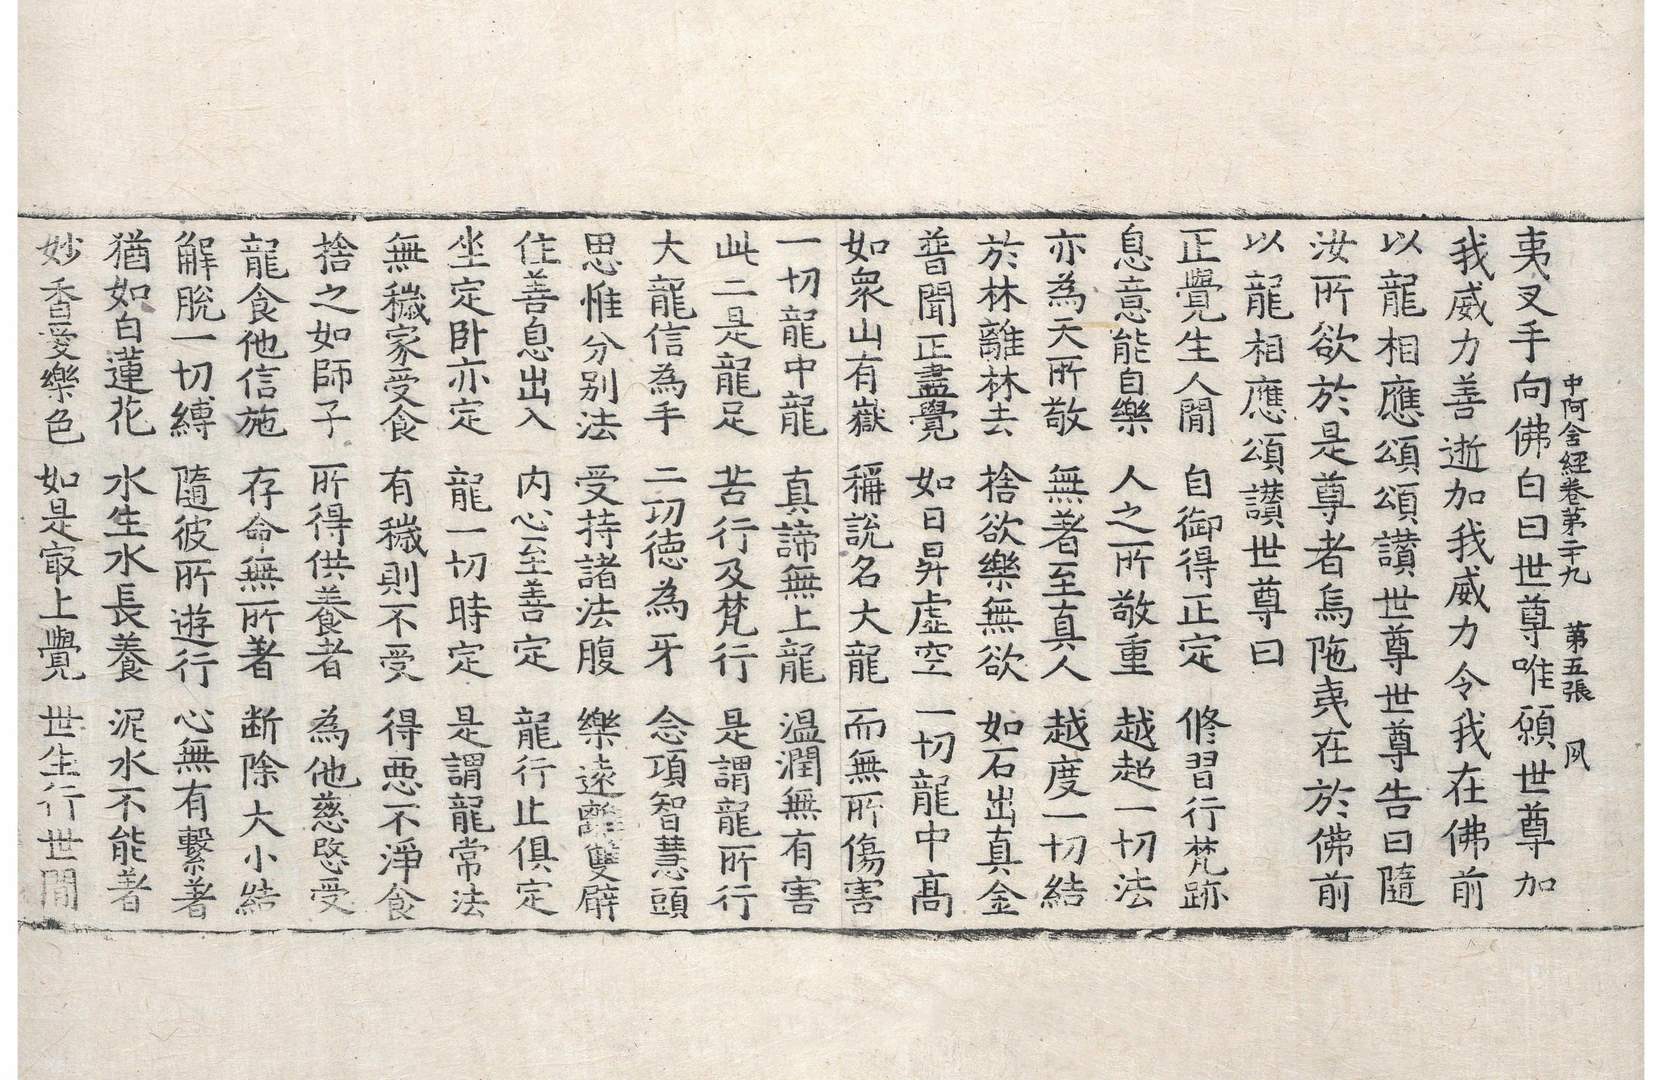 中阿含經卷第二十九 第五張 夙
夷叉手向佛白曰世尊唯願世尊加
我威力善逝加我威力令我在佛前
以龍相應頌頌讃世尊世尊告曰隨
汝所欲於是尊者烏陁夷在於佛前
以龍相應頌讃世尊曰
正覺生人閒 自御得正定 修習行梵跡
息意能自樂 人之所敬重 越超一切法
亦為天所敬 無著至真人 越度一切結
於林離林去 捨欲樂無欲 如石出真金
普聞正盡覺 如日昇虛空 一切龍中高
如衆山有嶽 稱說名大龍 而無所傷害
一切龍中龍 真諦無上龍 温潤無有害
此二是龍足 苦行及梵行 是謂龍所行
大龍信為手 二切徳為牙 念項智慧頭
思惟分别法 受持諸法腹 樂遠離雙臂
住善息出入 内心至善定 龍行止俱定
坐定卧亦定 龍一切時定 是謂龍常法
無穢家受食 有穢則不受 得惡不淨食
捨之如師子 所得供養者 為他慈愍受
龍食他信施 存命無所著 断除大小結
解脫一切縛 隨彼所遊行 心無有繫著
猶如白蓮花 水生水長養 泥水不能著
妙香愛樂色 如是㝡上覺 世生行世閒